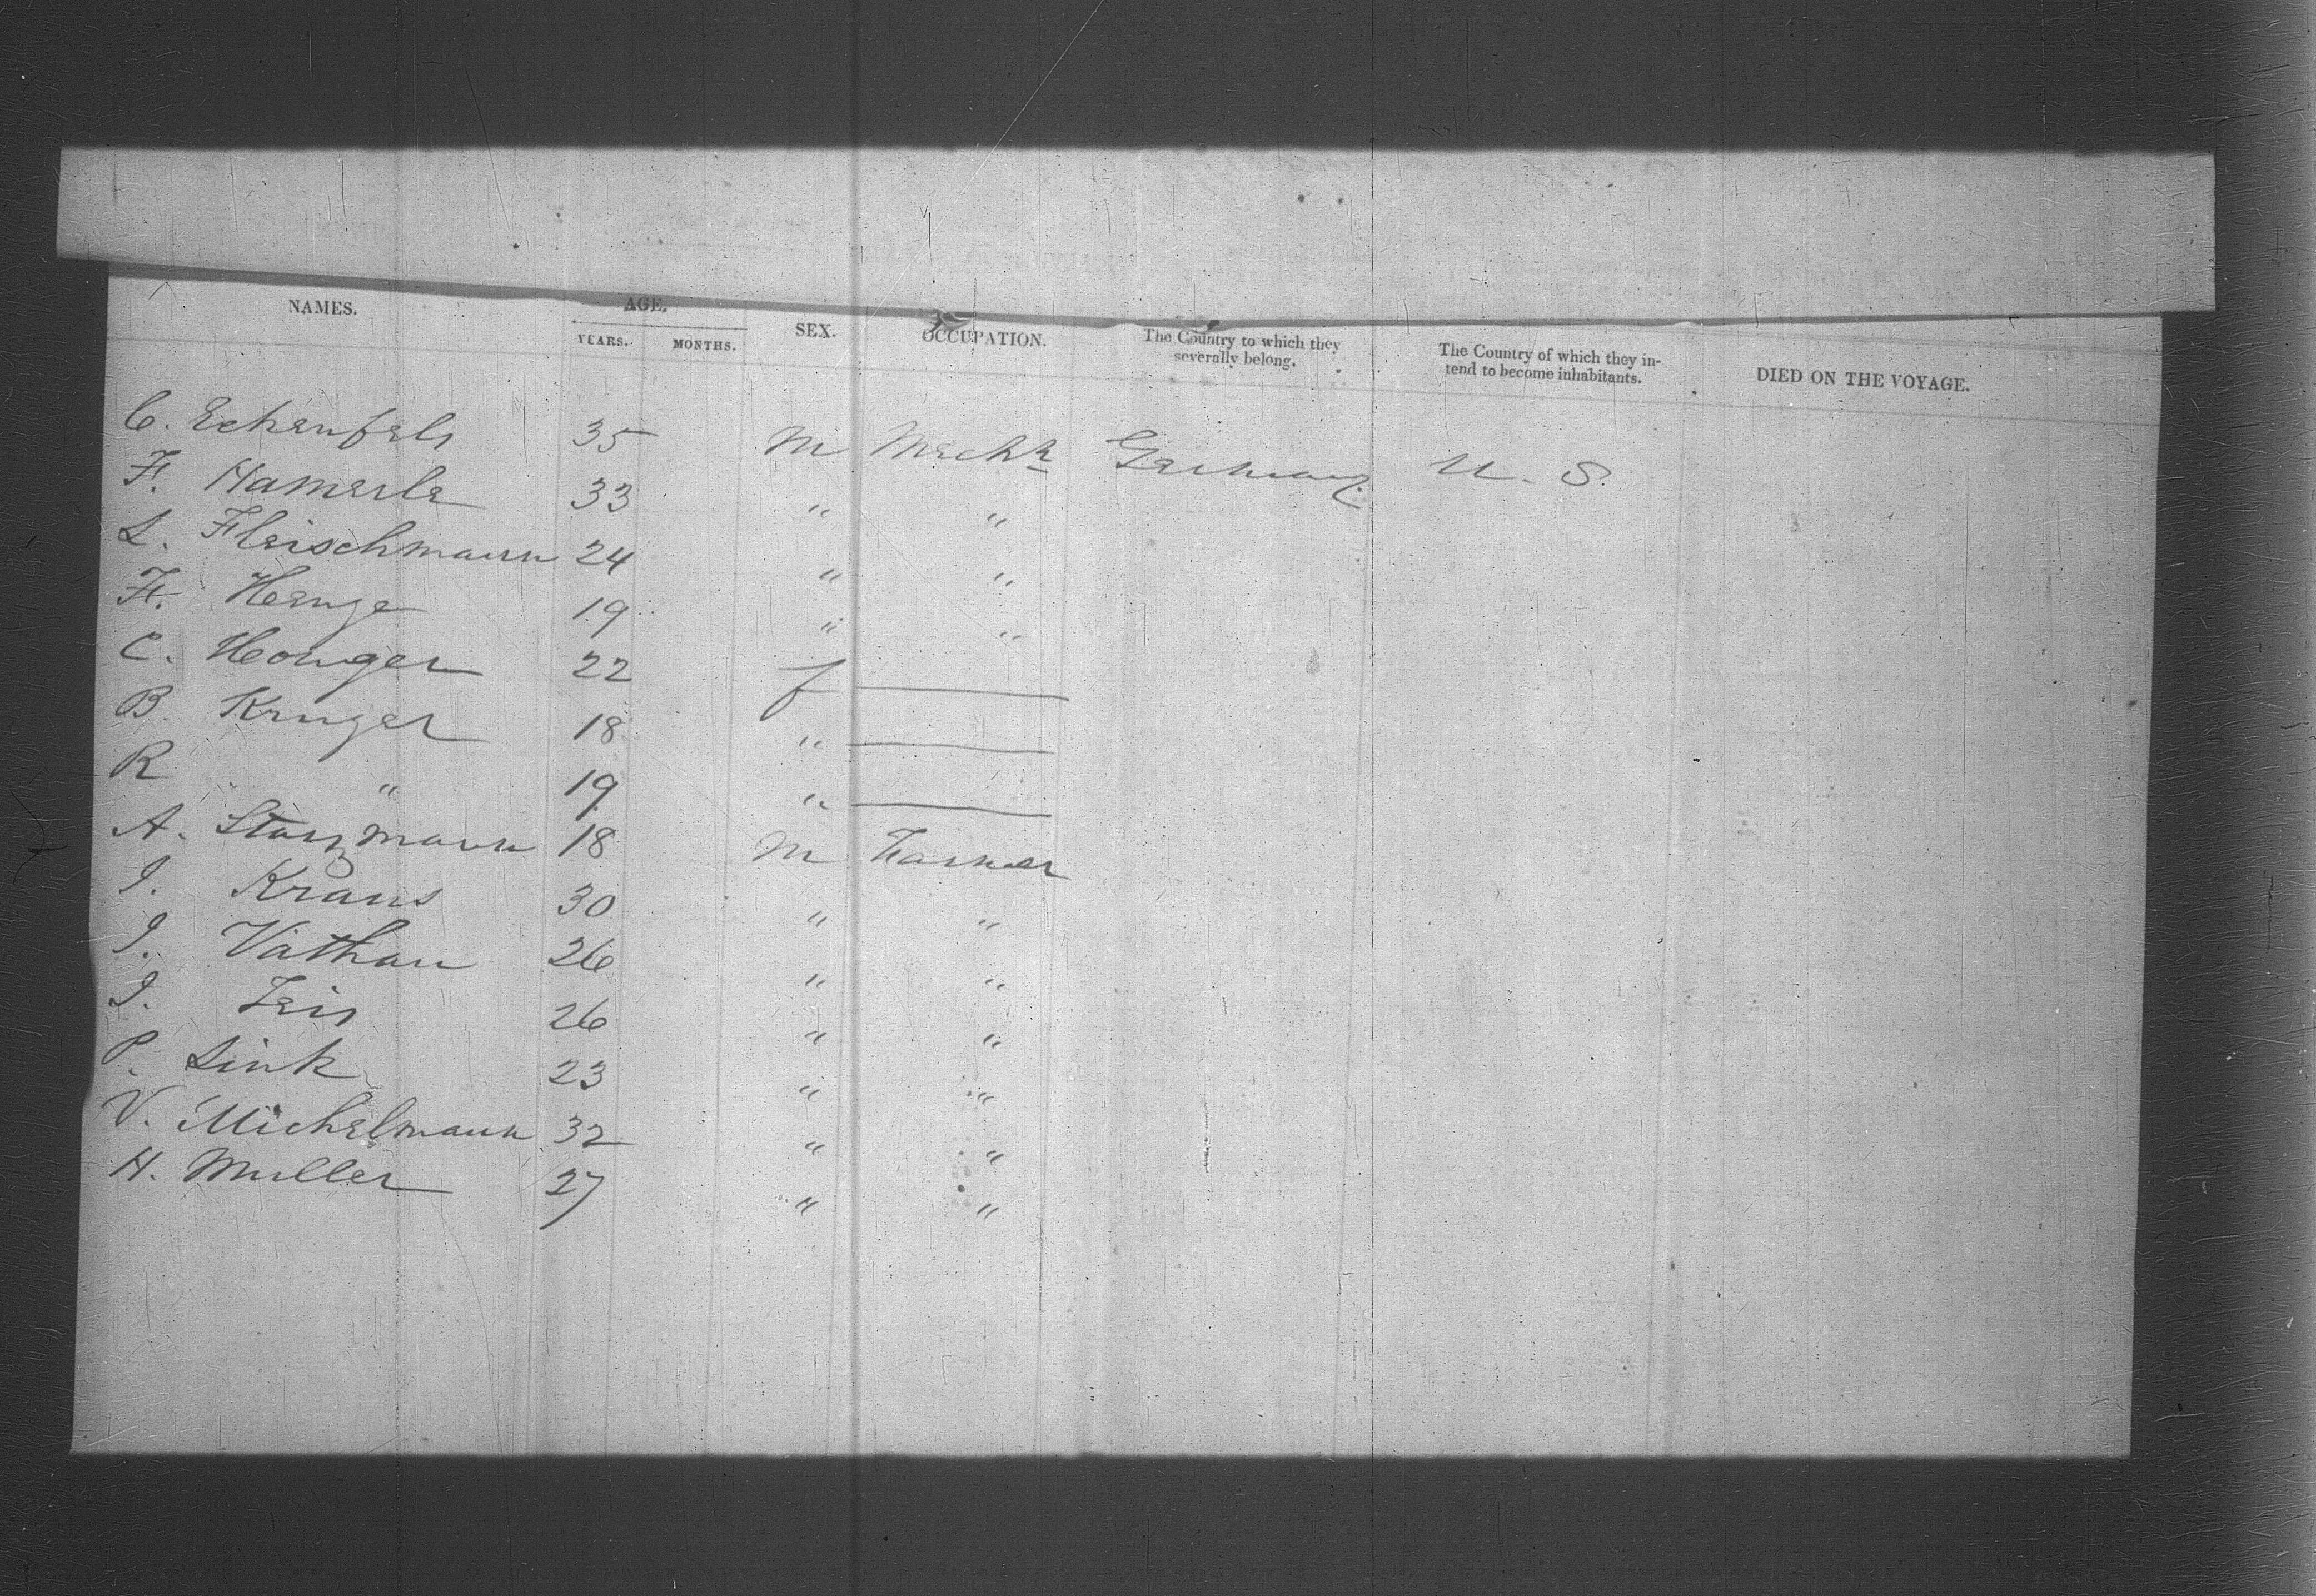 NAMES. AGE. SEX. OCCUPATION. The Country to which they severally belong. The Country of which they in-tend to become inhabitants. DIED ON THE VOYAGE.
YEARS. MONTHS.
C. Echenfels 35 M Mechk Germany U. S.
F. Hamerle 33 " "
L. Fleischmann 24 " "
F. Henge 19 " "
C. Honger 22 f
B. Kruger 18 "
R " 19 "
A. Starzmann 18 M Farmer
J. Kraus 30 " "
J. Vathau 26 " "
J. Zeis 26 " "
P. Link 23 " "
V. Michelmann 32 " "
H. Muller 27 " "